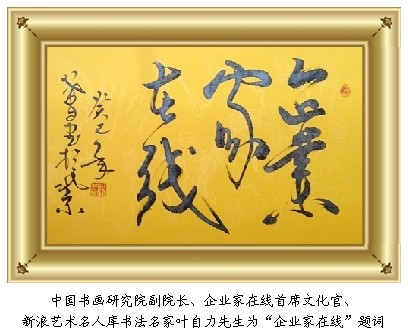 企業
家
在线
癸巳年
书於北京
中国书画研究院副院长、企业家在线首席文化官、
新浪艺术名人库书法名家叶自力先生为“企业家在线”题词